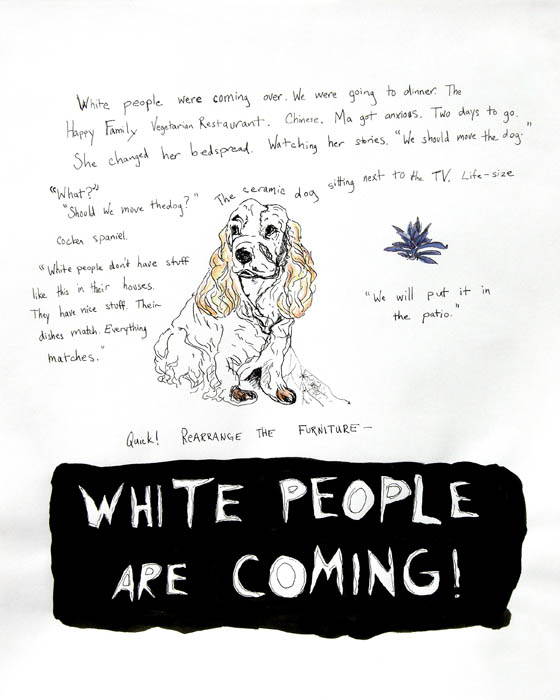 White people were coming over. We were going to dinner. The
Happy Family Vegetarian Restaurant. Chinese. Ma got anxious. Two days to go.
She changed her bedspread. Watching her stories. "We should move the dog."
"What?"
"Should we move thedog?" The ceramic dog sitting next to the TV. Life-size
cocker spaniel.
"White people don't have stuff
like this in their houses.
They have nice stuff. Their
dishes match. Everything
matches."
"We will put it in
the patio."
Quick! REARRANGE THE FURNITURE—
WHITE PEOPLE
ARE COMING!